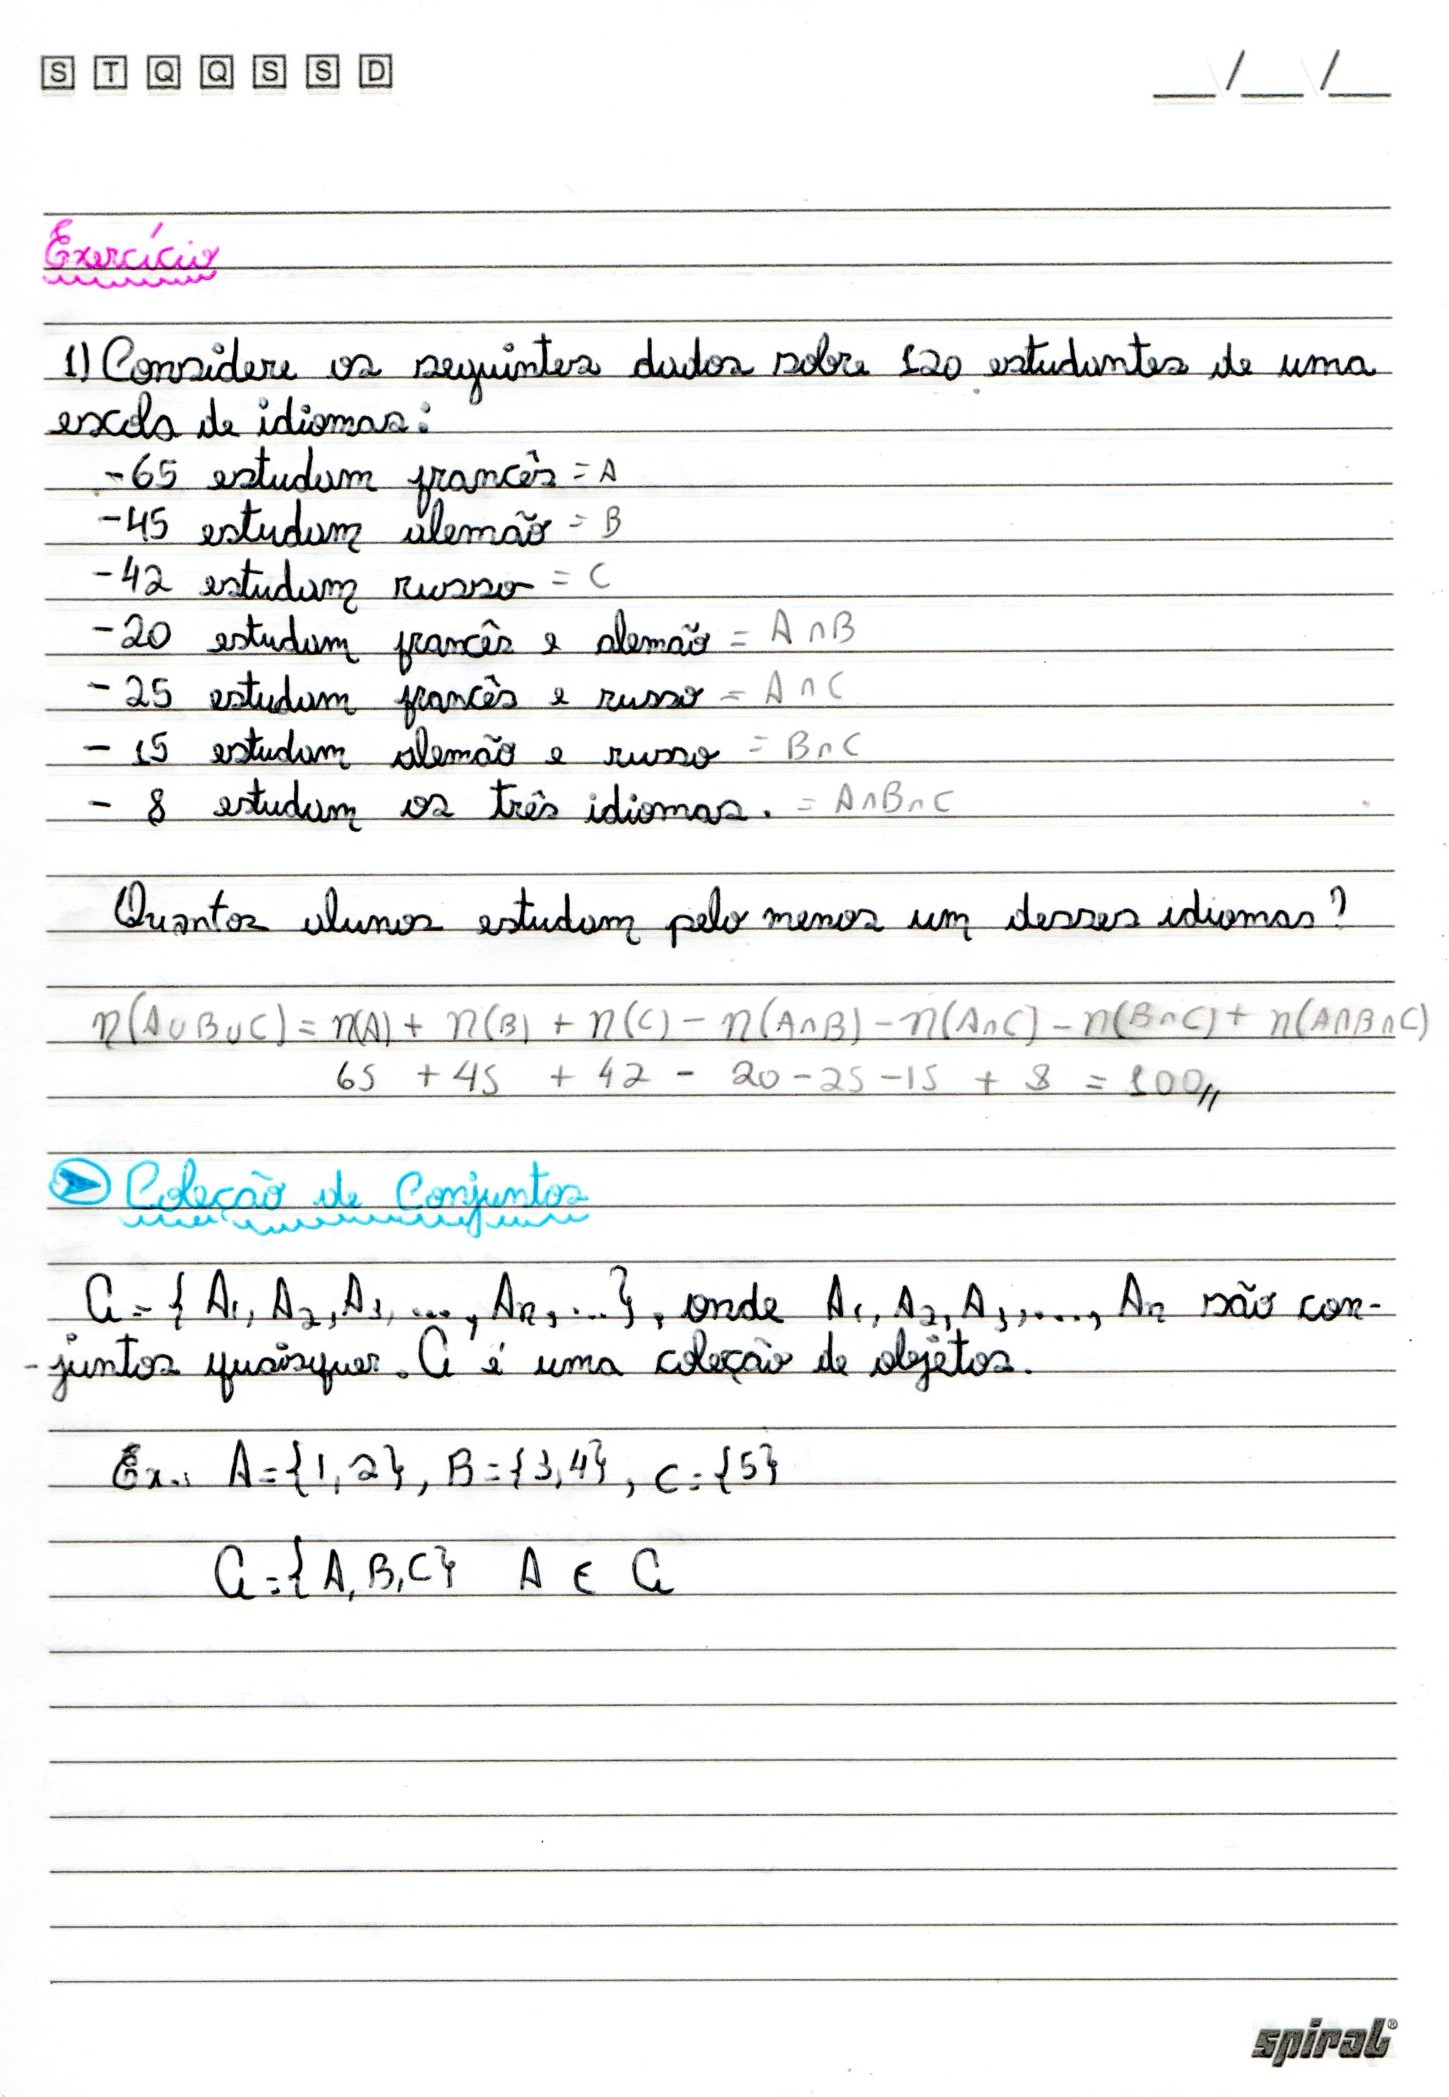 S T Q Q S S D
__/__/__
Exercício
1) Considere os seguintes dados sobre 120 estudantes de uma
escola de idiomas:
-65 estudam francês = A
-45 estudam alemão = B
-42 estudam russo = C
-20 estudam francês e alemão = A∩B
-25 estudam francês e russo = A∩C
-15 estudam alemão e russo = B∩C
-8 estudam os três idiomas. = A∩B∩C
Quantos alunos estudam pelo menos um desses idiomas?
n(A∪B∪C) = n(A) + n(B) + n(C) - n(A∩B) - n(A∩C) - n(B∩C) + n(A∩B∩C)
65 + 45 + 42 - 20 - 25 - 15 + 8 = 100//
➤ Coleção de Conjuntos
C = {A₁, A₂, A₃, ..., Aₙ, ...}, onde A₁, A₂, A₃, ..., Aₙ são con-
-juntos quaisquer. C é uma coleção de objetos.
Ex.: A={1,2}, B={3,4}, C={5}
C={A,B,C} A ∈ C
spiral®